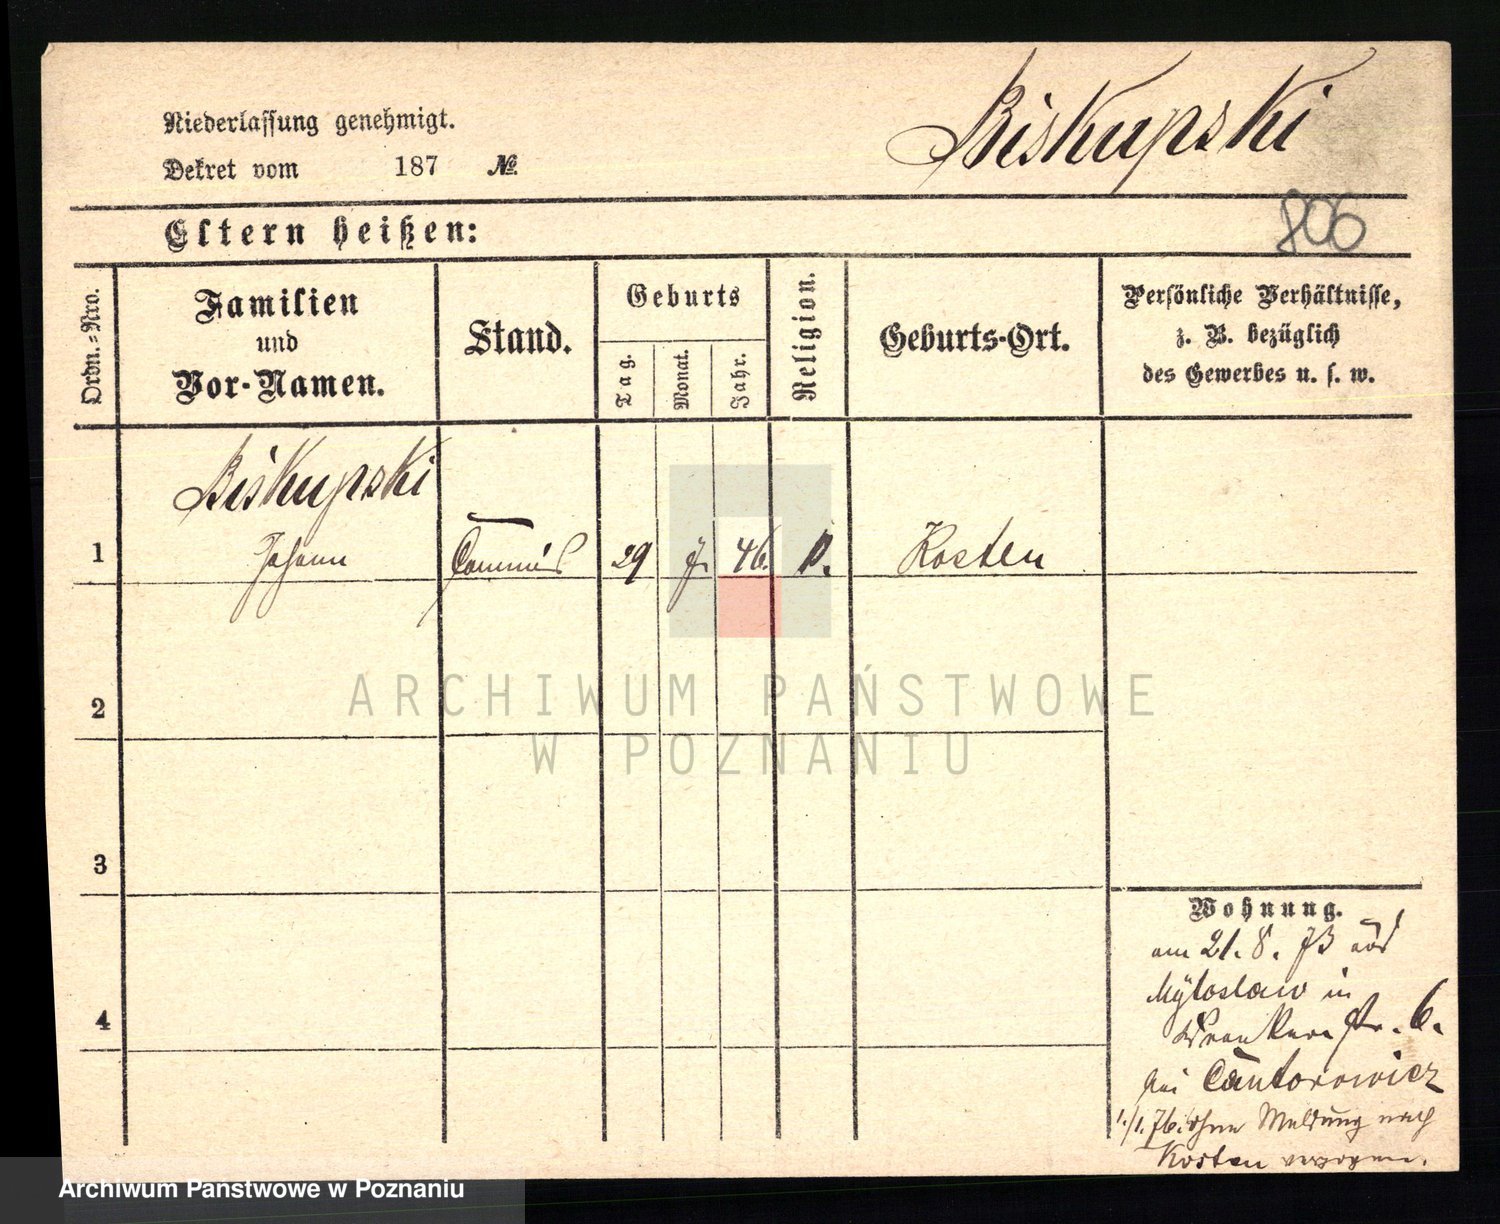 Biskupski
Niederlassung genehmigt.
Dekret vom 187 №
806
Eltern heißen:
Ordn.-Nro.
Familien
und
Vor-Namen.
Stand.
Geburts
Tag.
Monat.
Jahr.
Religion.
Geburts-Ort.
Persönliche Verhältnisse,
z. B. bezüglich
des Gewerbes u. s. w.
Biskupski
1 Johann Commis 29 46. Kosten
2
3
4
Wohnung.
am 21. 8. 73 aus
in
str. 6.
bei Cantorowicz
1./1. 76. ohne Meldung nach
Kosten verzogen.
ARCHIWUM PAŃSTWOWE
W POZNANIU
Archiwum Państwowe w Poznaniu